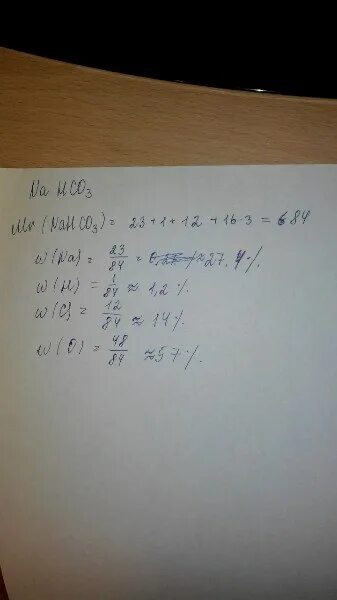 Na HCO₃
Mr (NaHCO₃) = 23+1+12+16·3 = 84
w(Na) = 23/84 = ≈27,4%.
w(H) = 1/84 ≈ 1,2%.
w(C) = 12/84 ≈ 14%.
w(O) = 48/84 ≈57%.